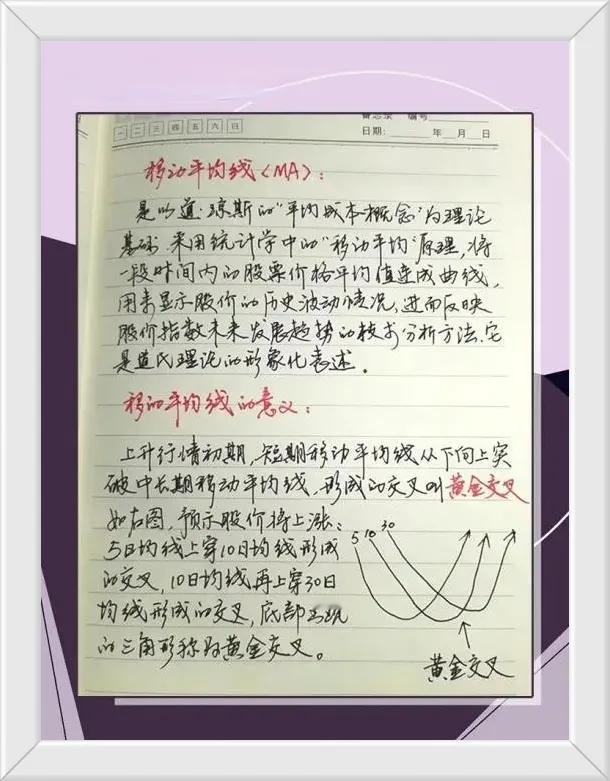 备忘录 编号
一 二 三 四 五 六 日
日期: 年 月 日
移动平均线〈MA〉:
是以道·琼斯的"平均成本概念"为理论
基础,采用统计学中的"移动平均"原理,将
一段时间内的股票价格平均值连成曲线,
用来显示股价的历史波动情况,进而反映
股价指数未来发展趋势的技术分析方法.它
是道氏理论的形象化表述。
移动平均线的意义:
上升行情初期,短期移动平均线从下向上突
破中长期移动平均线,形成的交叉叫黄金交叉
如右图,预示股价将上涨:
5日均线上穿10日均线形成
的交叉,10日均线再上穿30日
均线形成的交叉,底部出现
的三角形称为黄金交叉。
5 10 30
黄金交叉